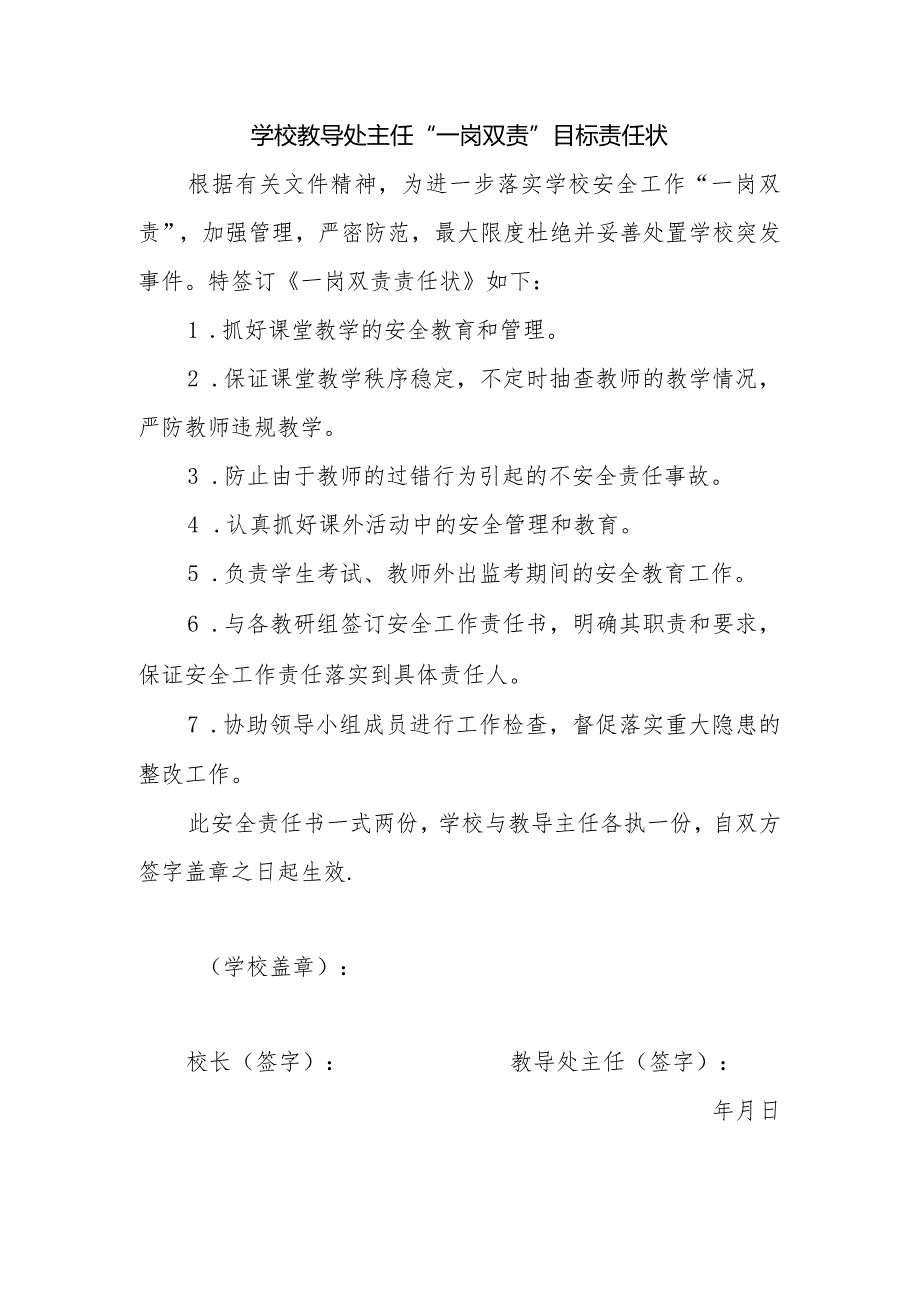 学校教导处主任“一岗双责”目标责任状
根据有关文件精神，为进一步落实学校安全工作“一岗双
责”，加强管理，严密防范，最大限度杜绝并妥善处置学校突发
事件。特签订《一岗双责责任状》如下：
1 .抓好课堂教学的安全教育和管理。
2 .保证课堂教学秩序稳定，不定时抽查教师的教学情况，
严防教师违规教学。
3 .防止由于教师的过错行为引起的不安全责任事故。
4 .认真抓好课外活动中的安全管理和教育。
5 .负责学生考试、教师外出监考期间的安全教育工作。
6 .与各教研组签订安全工作责任书，明确其职责和要求，
保证安全工作责任落实到具体责任人。
7 .协助领导小组成员进行工作检查，督促落实重大隐患的
整改工作。
此安全责任书一式两份，学校与教导主任各执一份，自双方
签字盖章之日起生效.
（学校盖章）：
校长（签字）： 教导处主任（签字）：
年月日